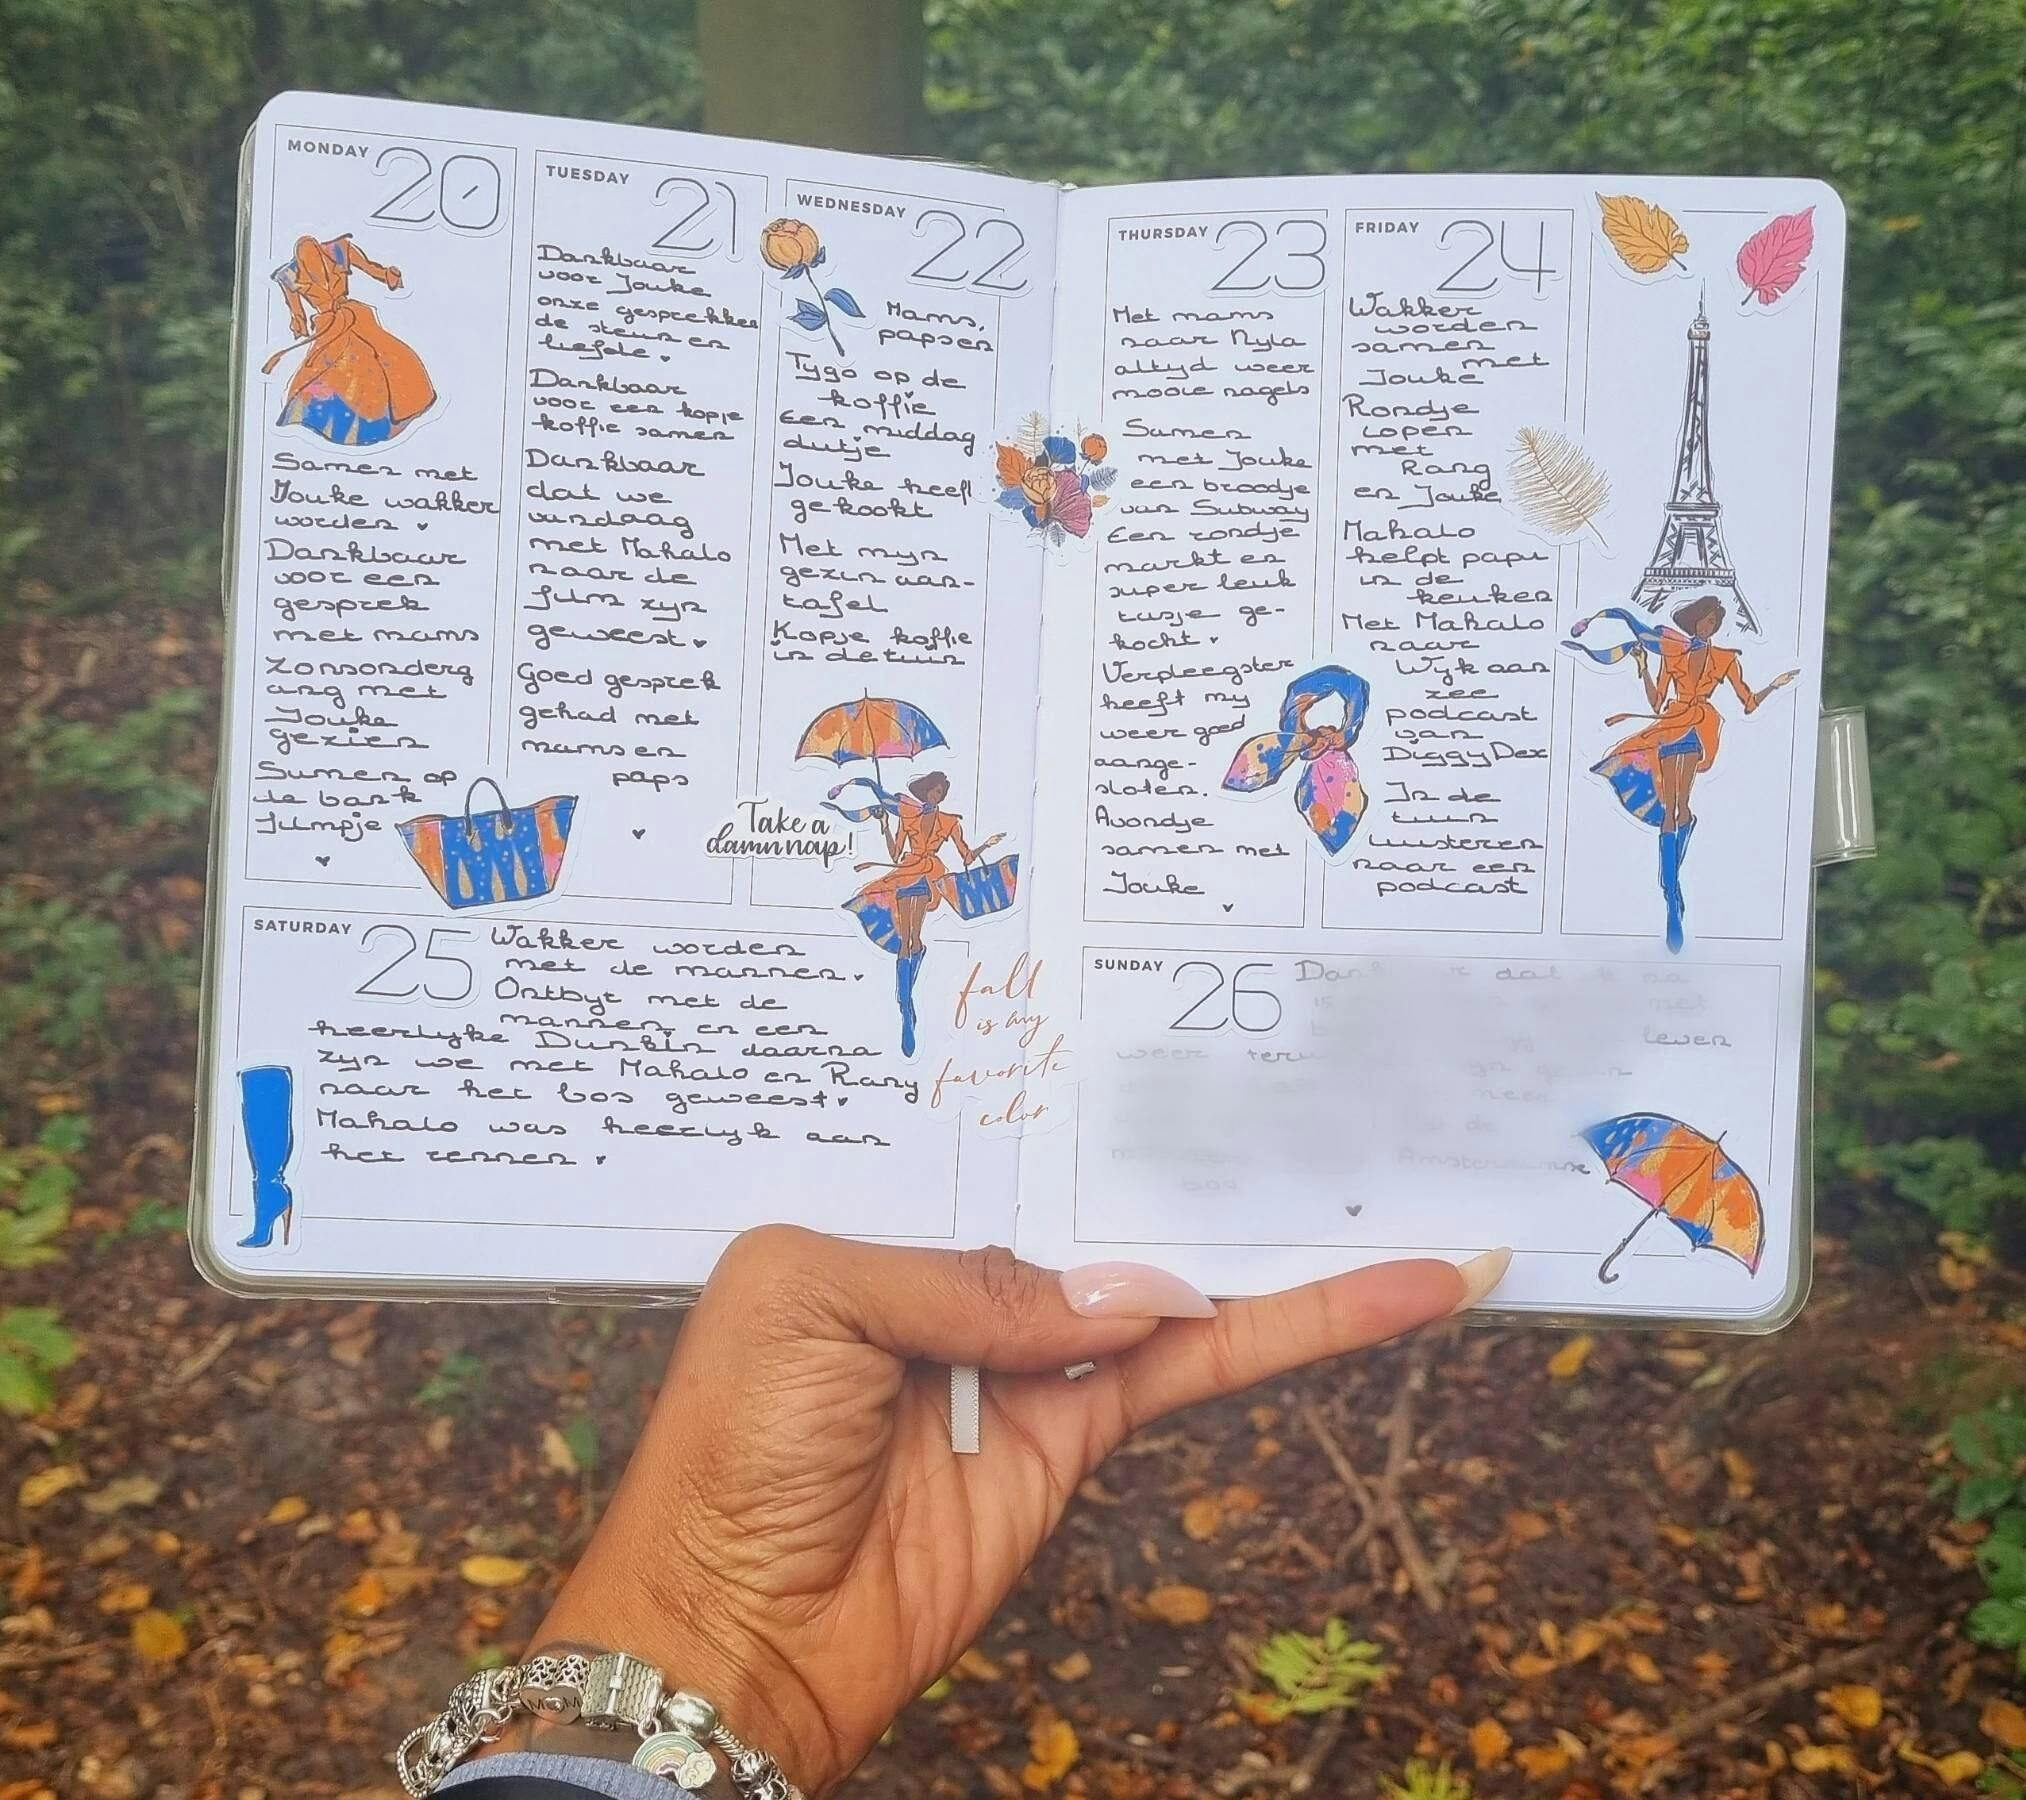 MONDAY 20
Samen met
Jouke wakker
worden
Dankbaar
voor een
gesprek
met mams
Zonsonderg
ang met
Jouke
gezien
Samen op
de bank
filmpje
TUESDAY 21
Dankbaar
voor Jouke
onze gesprekken
de steun en
liefde.
Dankbaar
voor een kopje
koffie samen
Dankbaar
dat we
vandaag
met Mahalo
naar de
film zijn
geweest
Goed gesprek
gehad met
mams en
paps
WEDNESDAY 22
Mams,
paps en
Tygo op de
koffie
Een middag
dutje
Jouke heeft
gekookt
Met mijn
gezin aan-
tafel
Kopje koffie
in de tuin
Take a
damn nap!
THURSDAY 23
Met mams
naar Nyla
altyd weer
mooie nagels
Samen
met Jouke
een broodje
van Subway
Een rondje
markt en
super leuk
tasje ge-
kocht
Verpleegster
heeft my
weer goed
aange-
sloten.
Avondje
samen met
Jouke
FRIDAY 24
Wakker
worden
samen
met
Jouke
Rondje
lopen
met
Rang
en Jouke
Mahalo
helpt papi
in de
keuken
Met Mahalo
naar
Wyk aan
zee
podcast
van
DiggyDex
In de
tuin
luisteren
naar een
podcast
SATURDAY 25
Wakker worden
met de mannen.
Ontbyt met de
mannen en een
heerlyke Dunkin daarna
zyn we met Mahalo en Rany
naar het bos geweest
Mahalo was heerlyk aan
het rennen
fall
is my
favorite
color
SUNDAY 26
dat
leven
weer
de
Amsterdamse
bos
MOM